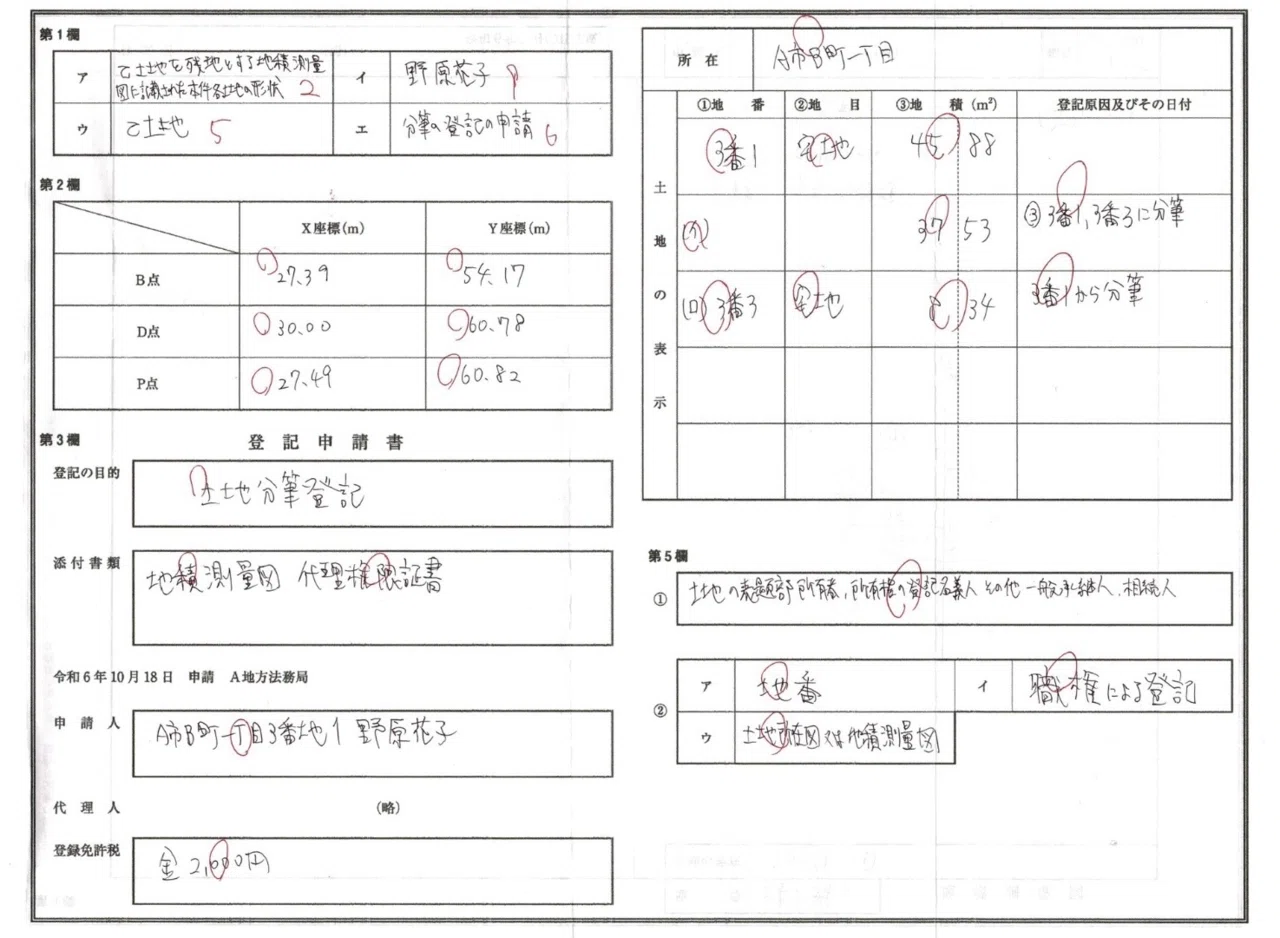 第1欄
ア
乙土地を残地とする地積測量
図に記載された本件各土地の形状 2
イ
野原花子
ウ
乙土地 5
エ
分筆の登記の申請 6
第2欄
X座標(m)
Y座標(m)
B点
27.39
54.17
D点
30.00
60.78
P点
27.49
60.82
第3欄
登記申請書
登記の目的
土地分筆登記
添付書類
地積測量図 代理権限証書
令和6年10月18日 申請 A地方法務局
申請人
A市B町一丁目3番地1 野原花子
代理人
(略)
登録免許税
金2,000円
所在
A市B町一丁目
土地の表示
①地番
②地目
③地積(m²)
登記原因及びその日付
3番1
宅地
45 88
(イ)
37 53
③3番1,3番3に分筆
(ロ)3番3
宅地
8 34
3番1から分筆
第5欄
①
土地の表題部所有者,所有権の登記名義人 その他一般承継人,相続人
②
ア
地番
イ
職権による登記
ウ
土地所在図又は地積測量図